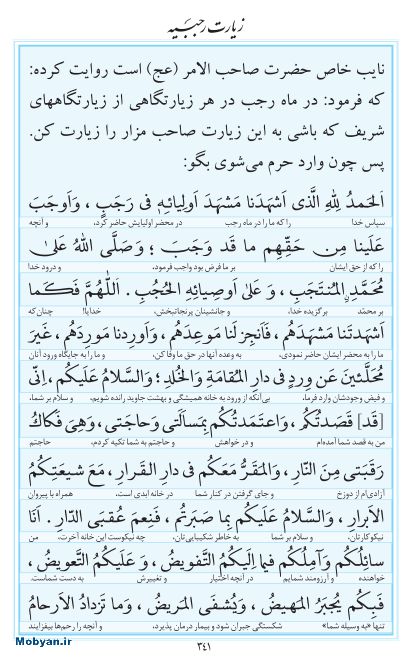 زیارت رجبیه
نایب خاص حضرت صاحب الامر (عج) است روایت کرده:
که فرمود: در ماه رجب در هر زیارتگاهی از زیارتگاههای
شریف که باشی به این زیارت صاحب مزار را زیارت کن.
پس چون وارد حرم می‌شوی بگو:
اَلحَمدُ لِلّٰهِ الَّذی اَشهَدَنا مَشهَدَ اَولِیائِهِ فی رَجَبٍ ، وَاَوجَبَ
سپاس خدا را که ما را در ماه رجب در محضر اولیایش حاضر کرد، و آنچه
عَلَینا مِن حَقِّهِم ما قَد وَجَبَ ؛ وَصَلَّی اللّٰهُ عَلیٰ
را که از حق ایشان بر ما فرض بود واجب فرمود، و درود خدا
مُحَمَّدٍ المُنتَجَبِ ، وَ عَلیٰ اَوصِیائِهِ الحُجُبِ . اَللّٰهُمَّ فَکَما
بر محمّد برگزیده خدا، و جانشینان پرنجابتبخش، خدایا! چنان‌که
اَشهَدتَنا مَشهَدَهُم ، فَاَنجِز لَنا مَوعِدَهُم ، وَاَورِدنا مَورِدَهُم ، غَیرَ
ما را به محضر ایشان حاضر نمودی، به وعده آنها در حق ما وفا کن، و ما را به جایگاه ورود آنان
مُحَلَّئینَ عَن وِردٍ فی دارِ المُقامَةِ وَالخُلدِ ؛ وَالسَّلامُ عَلَیکُم ، اِنّی
و فیض وجودشان وارد فرما، بی‌آنکه از ورود به خانه همیشگی و بهشت جاوید رانده شویم، و سلام بر شما،
[قَد] قَصَدتُکُم ، وَاعتَمَدتُکُم بِمَسأَلَتی وَحاجَتی ، وَهِیَ فَکاكُ
من به قصد شما آمده‌ام و در خواهش و حاجتم به شما تکیه کردم، حاجتم
رَقَبَتی مِنَ النّارِ ، وَالمَقَرُّ مَعَکُم فی دارِ القَرارِ ، مَعَ شیعَتِکُمُ
آزادی‌ام از دوزخ و جای گرفتن در کنار شما در خانه ابدی است، همراه با پیروان
الاَبرارِ ، وَالسَّلامُ عَلَیکُم بِما صَبَرتُم ، فَنِعمَ عُقبَی الدّارِ . اَنَا
نیکوکارتان، و سلام بر شما به خاطر شکیبایی‌تان، چه نیکوست این خانه آخرت، من
سائِلُکُم وَآمِلُکُم فیما اِلَیکُمُ التَّفویضُ ، وَ عَلَیکُمُ التَّعویضُ ،
خواهنده و آرزومند شمایم در آنچه اختیار و تغییرش به دست شماست.
فَبِکُم یُجبَرُ المَهیضُ ، وَیُشفَی المَریضُ ، وَما تَزدادُ الاَرحامُ
تنها «به وسیله شما» شکستگی جبران شود و بیمار درمان پذیرد، و آنچه را رحم‌ها بیفزایند
۳۴۱
Mobyan.ir